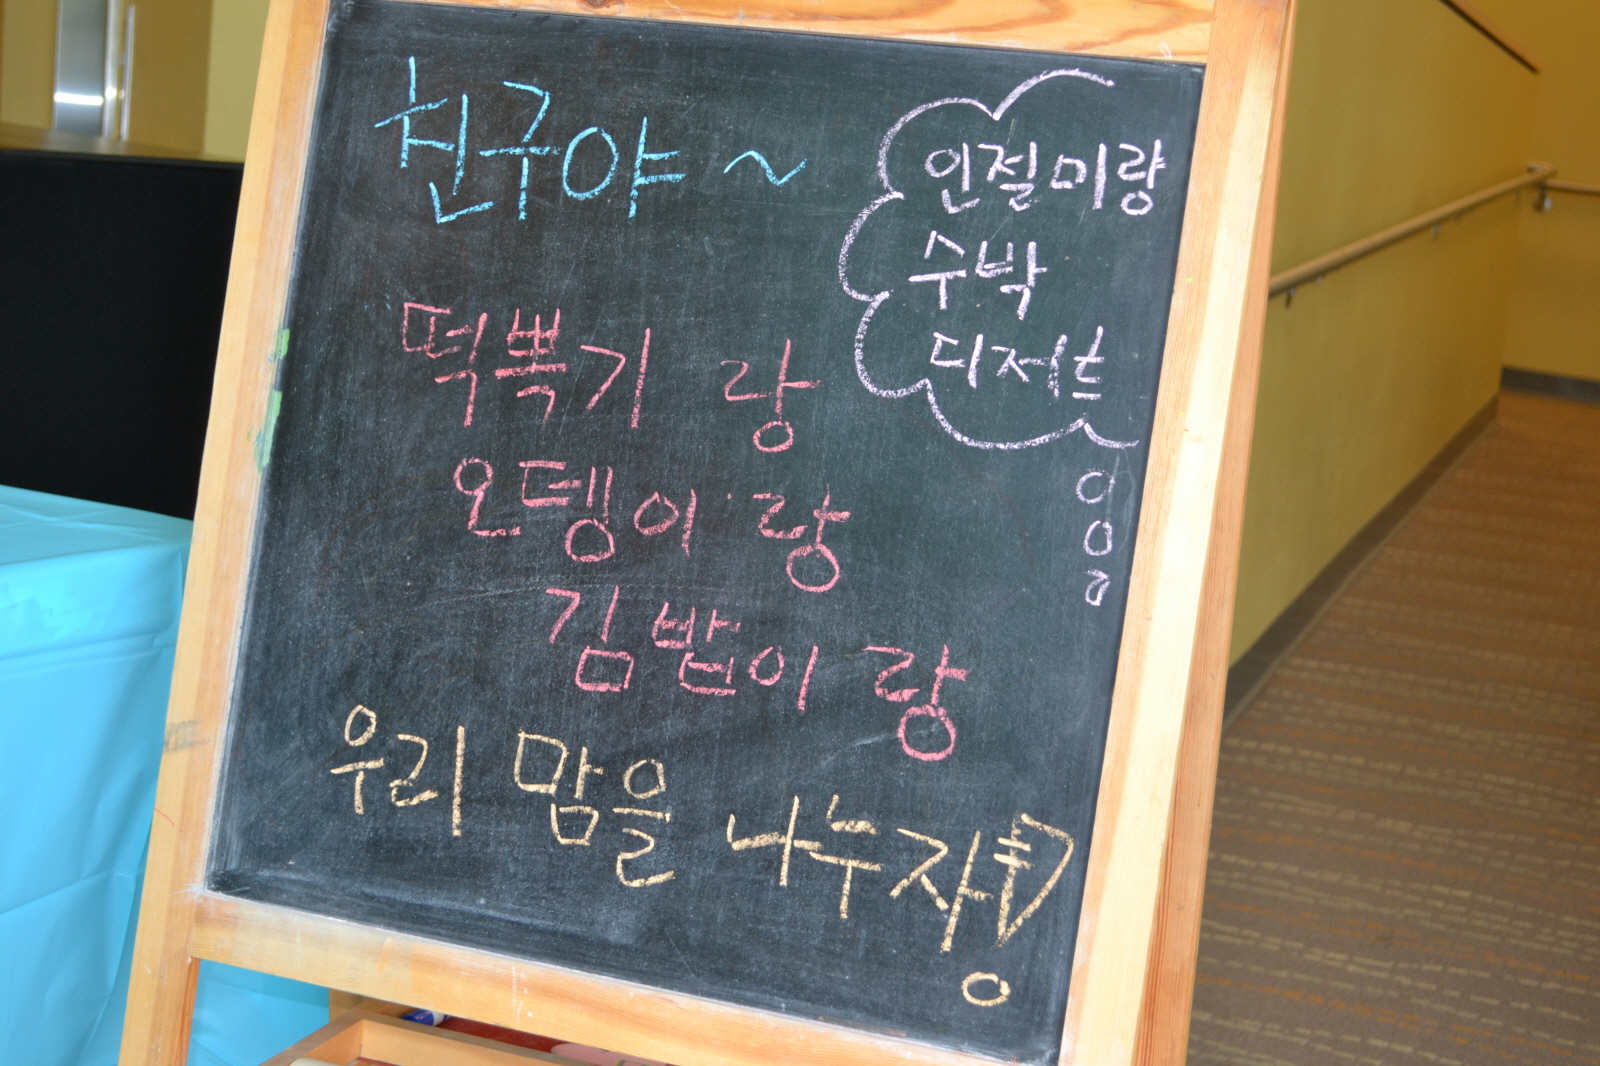 친구야~
인절미랑
수박
디저트
떡뽁기랑
오뎅이랑
김밥이랑
우리 맘을 나누자!